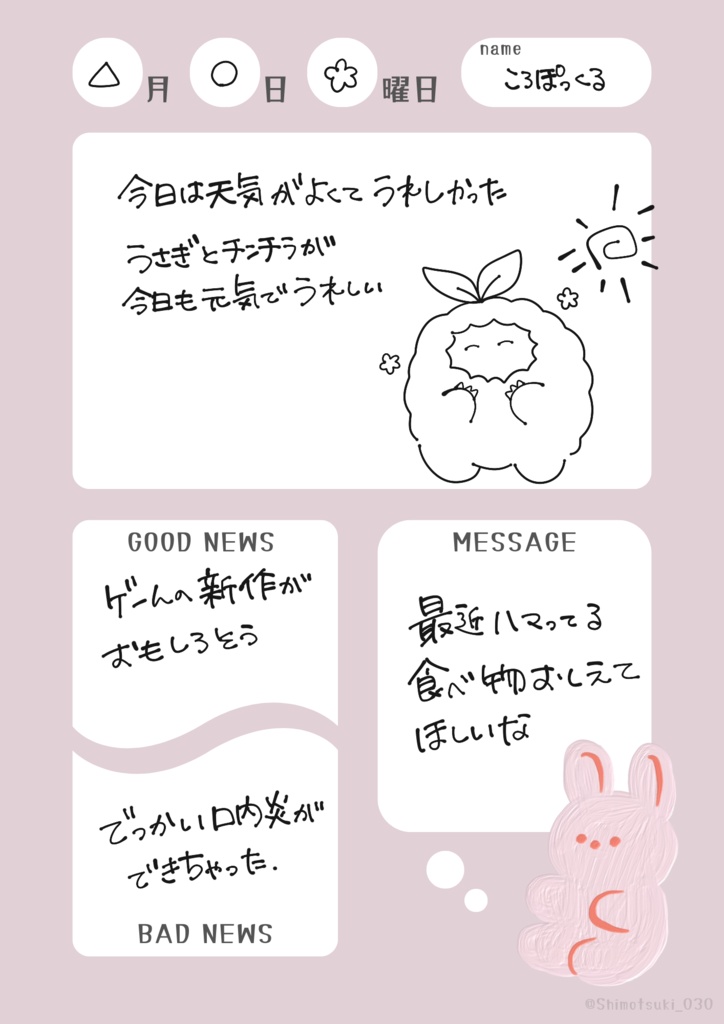 △月 ○日 曜日
name
ころぽっくる
今日は天気がよくて うれしかった
うさぎとチンチラが
今日も元気でうれしい
GOOD NEWS
ゲームの新作が
おもしろそう
でっかい口内炎が
できちゃった.
BAD NEWS
MESSAGE
最近ハマってる
食べ物おしえて
ほしいな
@Shimotsuki_030